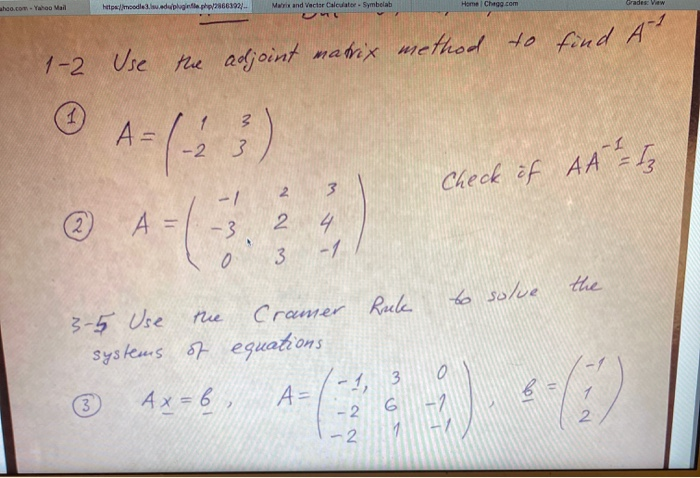 ahoo.com - Yahoo Mail https://moodle3.lsu.edu/pluginfile.php/2866392/... Matrix and Vector Calculator - Symbolab Home | Chegg.com Grades: View
1-2 Use the adjoint matrix method to find A⁻¹
① A = ( 1 3
-2 3 )
Check if AA⁻¹ = I₃
② A = ( -1 2 3
-3 2 4
0 3 -1 )
3-5 Use the Cramer Rule to solve the
systems of equations
③ Ax = b, A = ( -1, 3 0
-2 6 -1
-2 1 -1 ), b = ( -1
1
2 )